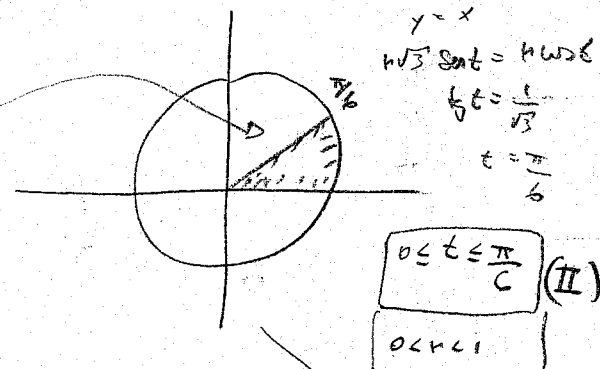 y = x
π/6
r√3 sen t = r cos t
tg t = 1/√3
t = π/6
0 ≤ t ≤ π/6 (II)
0 < r < 1